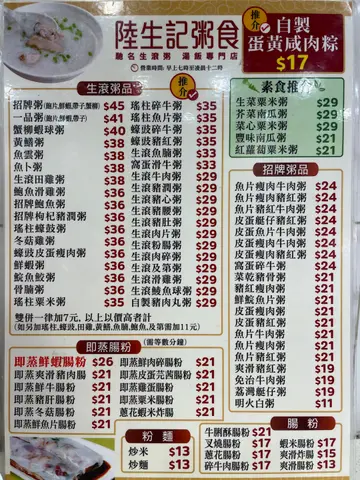 陸生記粥食
馳名生滾粥 湯飯專門店
營業時間: 早上七時至凌晨十二時
推介
自製
蛋黃咸肉粽
$17
生滾粥品
招牌粥(鮑片,鮮蝦,帶子蟹柳) $45
一品粥(鮑片,鮮蝦,帶子) $41
蟹柳蝦球粥 $40
黃鱔粥 $38
魚雲粥 $38
魚卜粥 $38
生滾田雞粥 $38
鮑魚滑雞粥 $36
招牌鮑魚粥 $36
招牌枸杞豬潤粥 $36
瑤柱蠔豉粥 $36
冬菇雞粥 $36
蠔豉皮蛋瘦肉粥 $36
鮮蝦粥 $36
鯇魚鮫粥 $36
骨腩粥 $36
瑤柱粟米粥 $35
推介
瑤柱碎牛粥 $35
瑤柱魚片粥 $35
蠔豉碎牛粥 $35
蠔豉豬紅粥 $35
生滾魚腩粥 $33
窩蛋滑牛粥 $33
生滾牛肉粥 $29
生滾豬潤粥 $29
生滾豬心粥 $29
生滾豬腰粥 $29
生滾豬肚粥 $29
生滾魚片粥 $29
生滾粉腸粥 $29
生滾肉碎粥 $29
生滾及第粥 $29
生滾滑雞粥 $29
生滾鯪魚球粥 $29
自製豬肉丸粥 $29
雙併一律加7元, 以上以價高者計
(如另加瑤柱,蠔豉,田雞,黃鱔,魚腩,鮑魚,及第需加11元)
素食推介
生菜粟米粥 $29
芥菜南瓜粥 $29
菜心粟米粥 $29
豐味南瓜粥 $21
紅蘿蔔粟米粥 $21
招牌粥品
魚片瘦肉牛肉粥 $24
魚片瘦肉豬紅粥 $24
魚片豬紅牛肉粥 $24
皮蛋艇仔豬紅粥 $24
皮蛋瘦肉牛肉粥 $24
皮蛋瘦肉豬紅粥 $24
窩蛋碎牛粥 $24
菜乾豬骨粥 $21
豬紅瘦肉粥 $21
鮮鯇魚片粥 $21
皮蛋瘦肉粥 $21
皮蛋豬紅粥 $21
魚片艇仔粥 $21
魚片牛肉粥 $21
魚片瘦肉粥 $21
魚片豬紅粥 $21
爽滑豬紅粥 $19
免治牛肉粥 $19
荔灣艇仔粥 $19
明火白粥 $11
即蒸腸粉
(需等數分鐘)
即蒸鮮蝦腸粉 $26
即蒸爽滑豬肉腸 $21
即蒸鮮牛腸粉 $21
即蒸豬肝腸粉 $21
即蒸冬菇腸粉 $21
即蒸鮮魚片腸粉 $21
即蒸鮮肉碎腸粉 $21
即蒸皮蛋芫茜腸粉 $21
即蒸雞蛋腸粉 $21
即蒸粟米腸粉 $21
蔥花蝦米炸腸 $21
粉麵
炒米 $13
炒麵 $13
腸粉
牛脷酥腸粉 $21
叉燒腸粉 $17
蔥花腸粉 $17
碎牛肉腸粉 $17
蝦米腸粉 $17
爽滑炸腸 $15
爽滑腸粉 $13